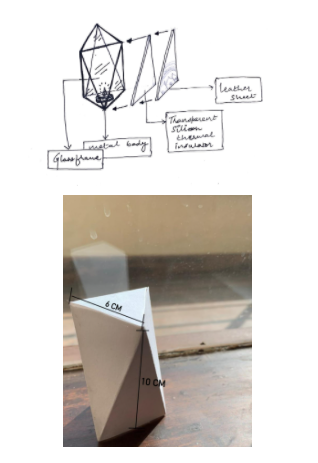 Leather
sheet
Transparent
silicon
thermal
insulator
metal body
Glassframe
6 CM
10 CM